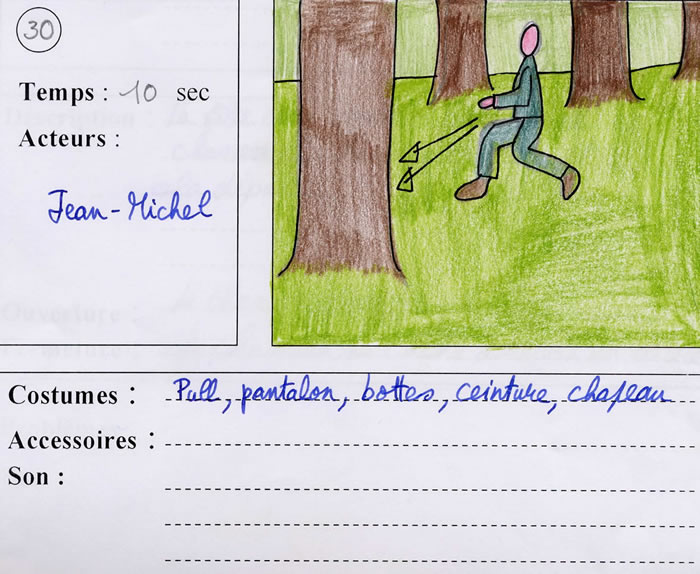 30
Temps : 10 sec
Acteurs :
Jean-Michel
Costumes : Pull, pantalon, bottes, ceinture, chapeau
Accessoires :
Son :